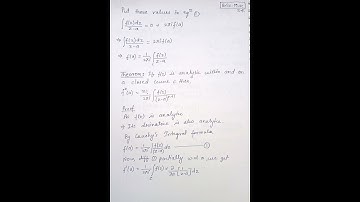 Put these values to eqⁿ ①
∫ f(z)dz/z-a - 0 = 2πi f(a)
⇒ ∫ f(z)dz/z-a = 2πi f(a)
⇒ f(a) = 1/2πi ∫ f(z)/z-a
Theorem: If f(z) is analytic within and on
a closed curve c then
Proof
As f(z) is analytic
⇒ Its derivative is also analytic
By Cauchy's Integral formula
f(a) = 1/2πi ∫ f(z)/z-a dz —— ①
Now diff ① partially w.r.t a we get
f'(a) = 1/2πi ∫ f(z) ∂/∂a (1/z-a) dz